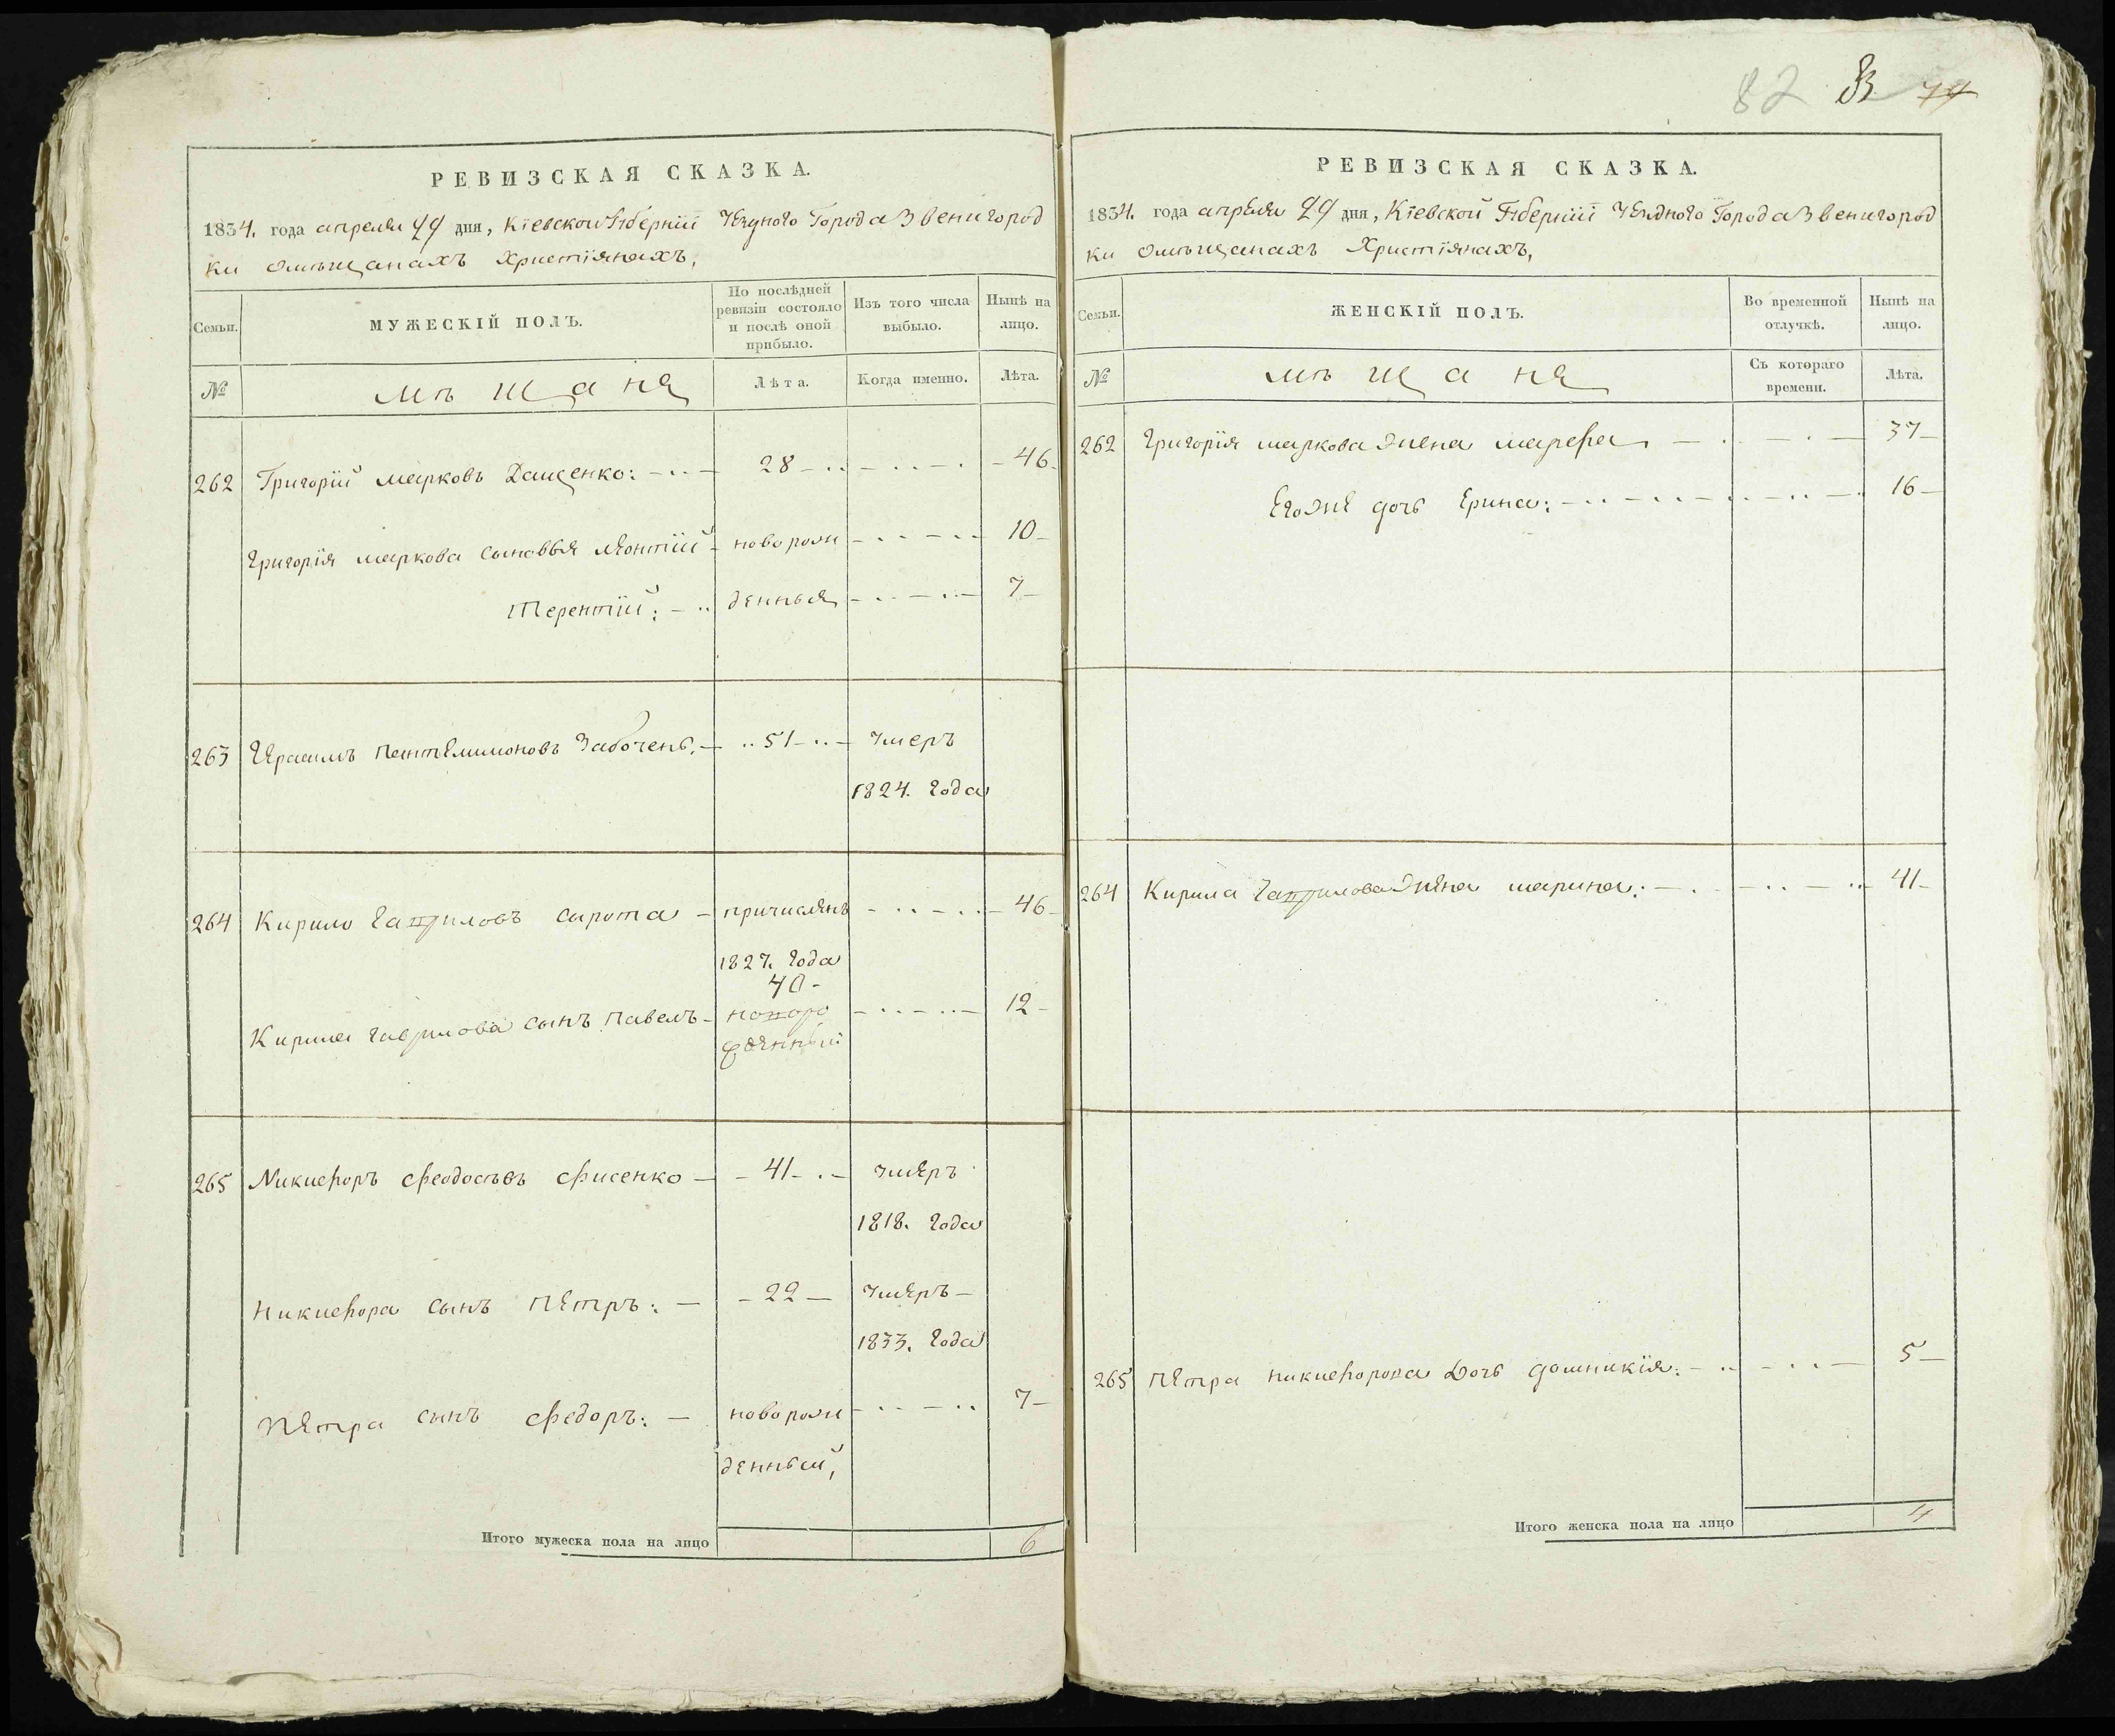 82 83 79
РЕВИЗСКАЯ СКАЗКА.
1834. года апреля 29 дня, Кіевской Губерніи Уезного Города Звенигород
ки омѣщанахъ Християнахъ,
Семьи.
МУЖЕСКІЙ ПОЛЪ.
По послѣдней ревизіи состояло и послѣ оной прибыло.
Изъ того числа выбыло.
Нынѣ на лицо.
№
мѣщане
Лѣта.
Когда именно.
Лѣта.
262 Григорій Марковъ Дащенко: 28 46
Григорія Маркова сыновья Леонтій новорож 10
Терентій: денныя 7
263 Герасимъ Пантелимоновъ 51 умеръ
1824. года
264 Кирило Гавриловъ Сирота причисленъ 46
1827. года
40
Кирила Гаврилова сынъ Павелъ 12
265 Никифоръ Феодосѣевъ Фисенко 41 умеръ
1818. года
Никифора сынъ Петръ: 22 умеръ
1833. года
Петра сынъ Федоръ: новорож 7
денный,
Итого мужеска пола на лицо 6
РЕВИЗСКАЯ СКАЗКА.
1834. года апреля 29 дня, Кіевской Губерніи Уездного Города Звенигород
ки омѣщанахъ Християнахъ,
Семьи.
ЖЕНСКІЙ ПОЛЪ.
Во временной отлучкѣ.
Нынѣ на лицо.
№
мѣщане
Съ котораго времени.
Лѣта.
262 Григорія Маркова жена Марфа 37
Егоже дочь Ерина: 16
264 Кирила Гаврилова жена Марина: 41
265 Петра Никифорова дочь Домникія: 5
Итого женска пола на лицо 4